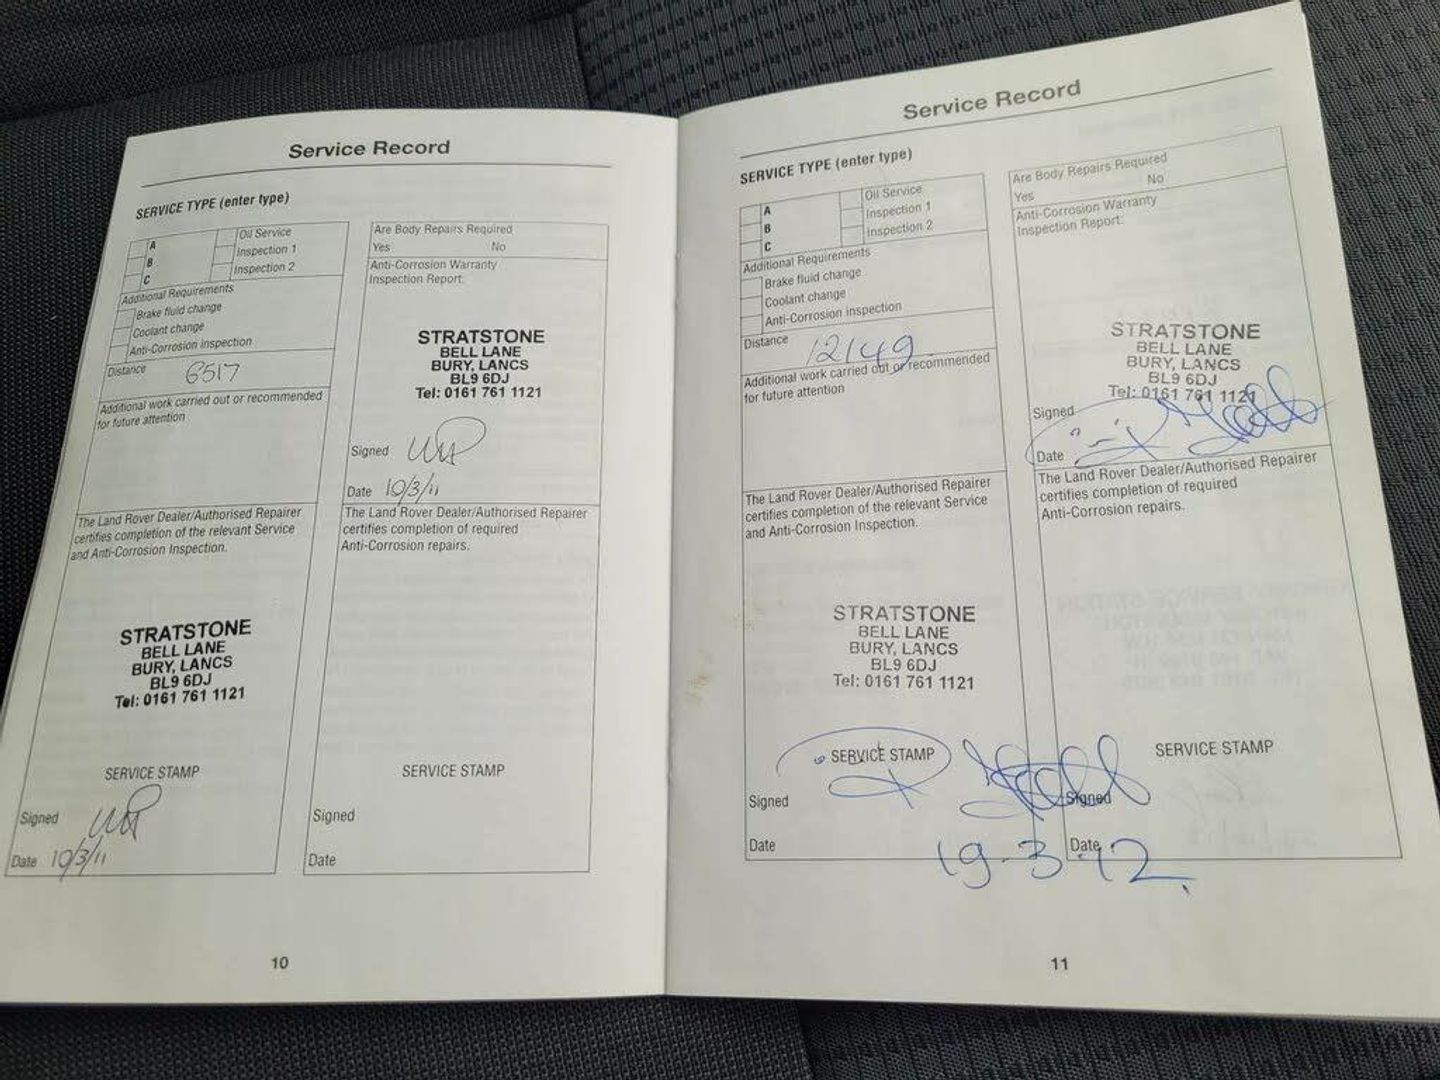 Service Record
SERVICE TYPE (enter type)
A
B
C
Oil Service
Inspection 1
Inspection 2
Additional Requirements
Brake fluid change
Coolant change
Anti-Corrosion inspection
Distance 6517
Additional work carried out or recommended
for future attention
The Land Rover Dealer/Authorised Repairer
certifies completion of the relevant Service
and Anti-Corrosion Inspection.
STRATSTONE
BELL LANE
BURY, LANCS
BL9 6DJ
Tel: 0161 761 1121
SERVICE STAMP
Signed
Date 10/3/11
Are Body Repairs Required
Yes No
Anti-Corrosion Warranty
Inspection Report:
STRATSTONE
BELL LANE
BURY, LANCS
BL9 6DJ
Tel: 0161 761 1121
Signed
Date 10/3/11
The Land Rover Dealer/Authorised Repairer
certifies completion of required
Anti-Corrosion repairs.
SERVICE STAMP
Signed
Date
10
Service Record
SERVICE TYPE (enter type)
A
B
C
Oil Service
Inspection 1
Inspection 2
Additional Requirements
Brake fluid change
Coolant change
Anti-Corrosion inspection
Distance 12149
Additional work carried out or recommended
for future attention
The Land Rover Dealer/Authorised Repairer
certifies completion of the relevant Service
and Anti-Corrosion Inspection.
STRATSTONE
BELL LANE
BURY, LANCS
BL9 6DJ
Tel: 0161 761 1121
SERVICE STAMP
Signed
Date
Are Body Repairs Required
Yes No
Anti-Corrosion Warranty
Inspection Report:
STRATSTONE
BELL LANE
BURY, LANCS
BL9 6DJ
Tel: 0161 761 1121
Signed
Date
The Land Rover Dealer/Authorised Repairer
certifies completion of required
Anti-Corrosion repairs.
SERVICE STAMP
Signed
Date
19-3-12
11